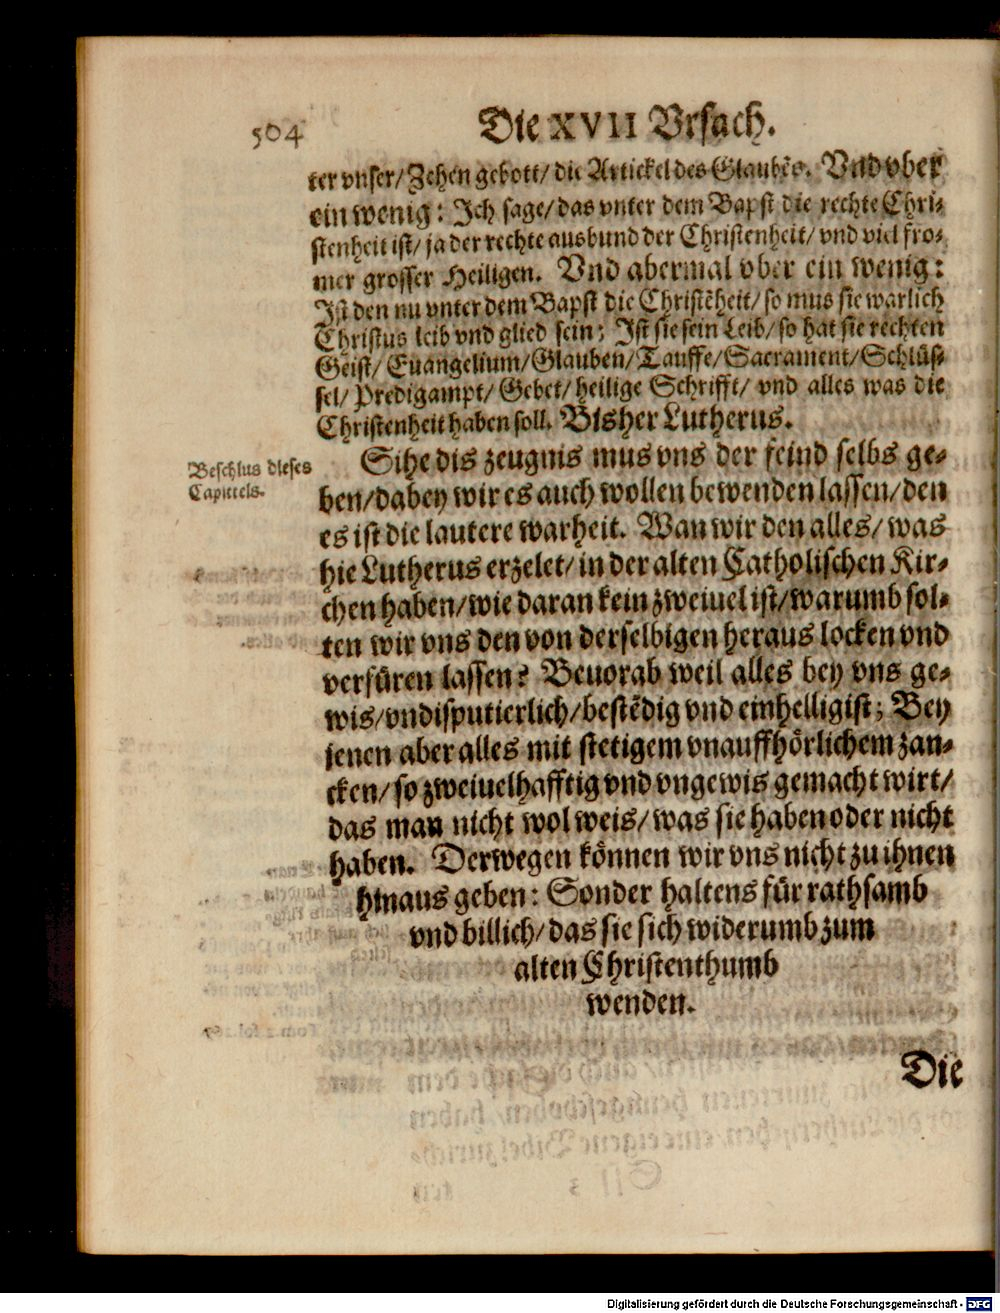 504
Die XVII Vrsach.
ter vnser/ Zehen gebott/ die Artickel des Glaubẽs. Vnd vber
ein wenig: Ich sage/ das vnter dem Bapst die rechte Chri-
stenheit ist/ ja der rechte ausbund der Christenheit/ vnd viel fro-
mer grosser Heiligen. Vnd abermal vber ein wenig:
Ist den nu vnter dem Bapst die Christẽheit/ so mus sie warlich
Christus leib vnd glied sein; Ist sie sein Leib/ so hat sie rechten
Geist/ Euangelium/ Glauben/ Tauffe/ Sacrament/ Schlüs-
sel/ Predigampt/ Gebet/ heilige Schrifft/ vnd alles was die
Christenheit haben soll. Bisher Lutherus.
Beschlus dieses
Capittels.
Sihe dis zeugnis mus vns der feind selbs ge-
ben/ dabey wir es auch wollen bewenden lassen/ den
es ist die lautere warheit. Wan wir den alles/ was
hie Lutherus erzelet/ in der alten Catholischen Kir-
chen haben/ wie daran kein zweiuel ist/ warumb sol-
ten wir vns den von derselbigen heraus locken vnd
verfüren lassen? Beuorab weil alles bey vns ge-
wis/ vndisputierlich/ bestẽdig vnd einhellig ist; Bey
jenen aber alles mit stetigem vnauffhörlichem zan-
cken/ so zweiuelhafftig vnd vngewis gemacht wirt/
das man nicht wol weis/ was sie haben oder nicht
haben. Derwegen können wir vns nicht zu ihnen
hinaus geben: Sonder haltens für rathsamb
vnd billich/ das sie sich widerumb zum
alten Christenthumb
wenden.
Die
Digitalisierung gefördert durch die Deutsche Forschungsgemeinschaft - DFG